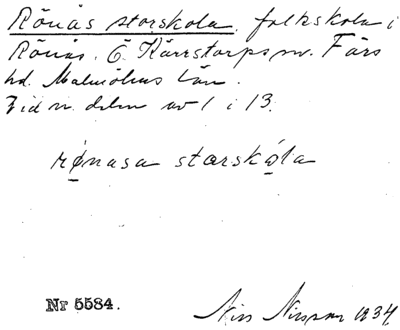 Rönås storskola. folkskola i
Rönås. Ö. Kärrstorps sn. Färs
hd. Malmöhus län.
I id n. delen av 1 i 13.
rǿnasa storskǿla
Nr 5584.
Nils Nilsson 1934